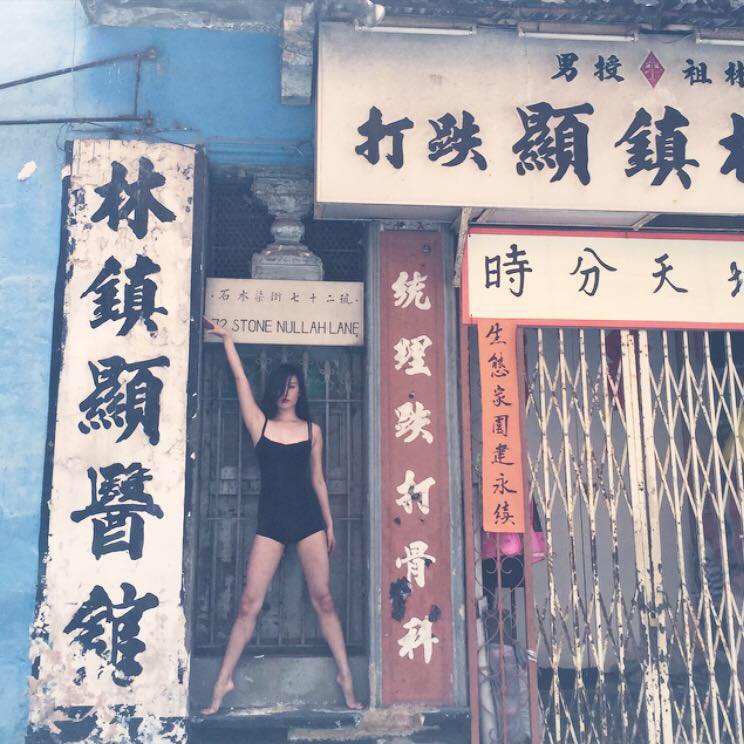 林祖授男
林鎮顯跌打
時分天地
林鎮顯醫館
石水渠街七十二號
72 STONE NULLAH LANE
統理跌打骨科
生態家園建永續